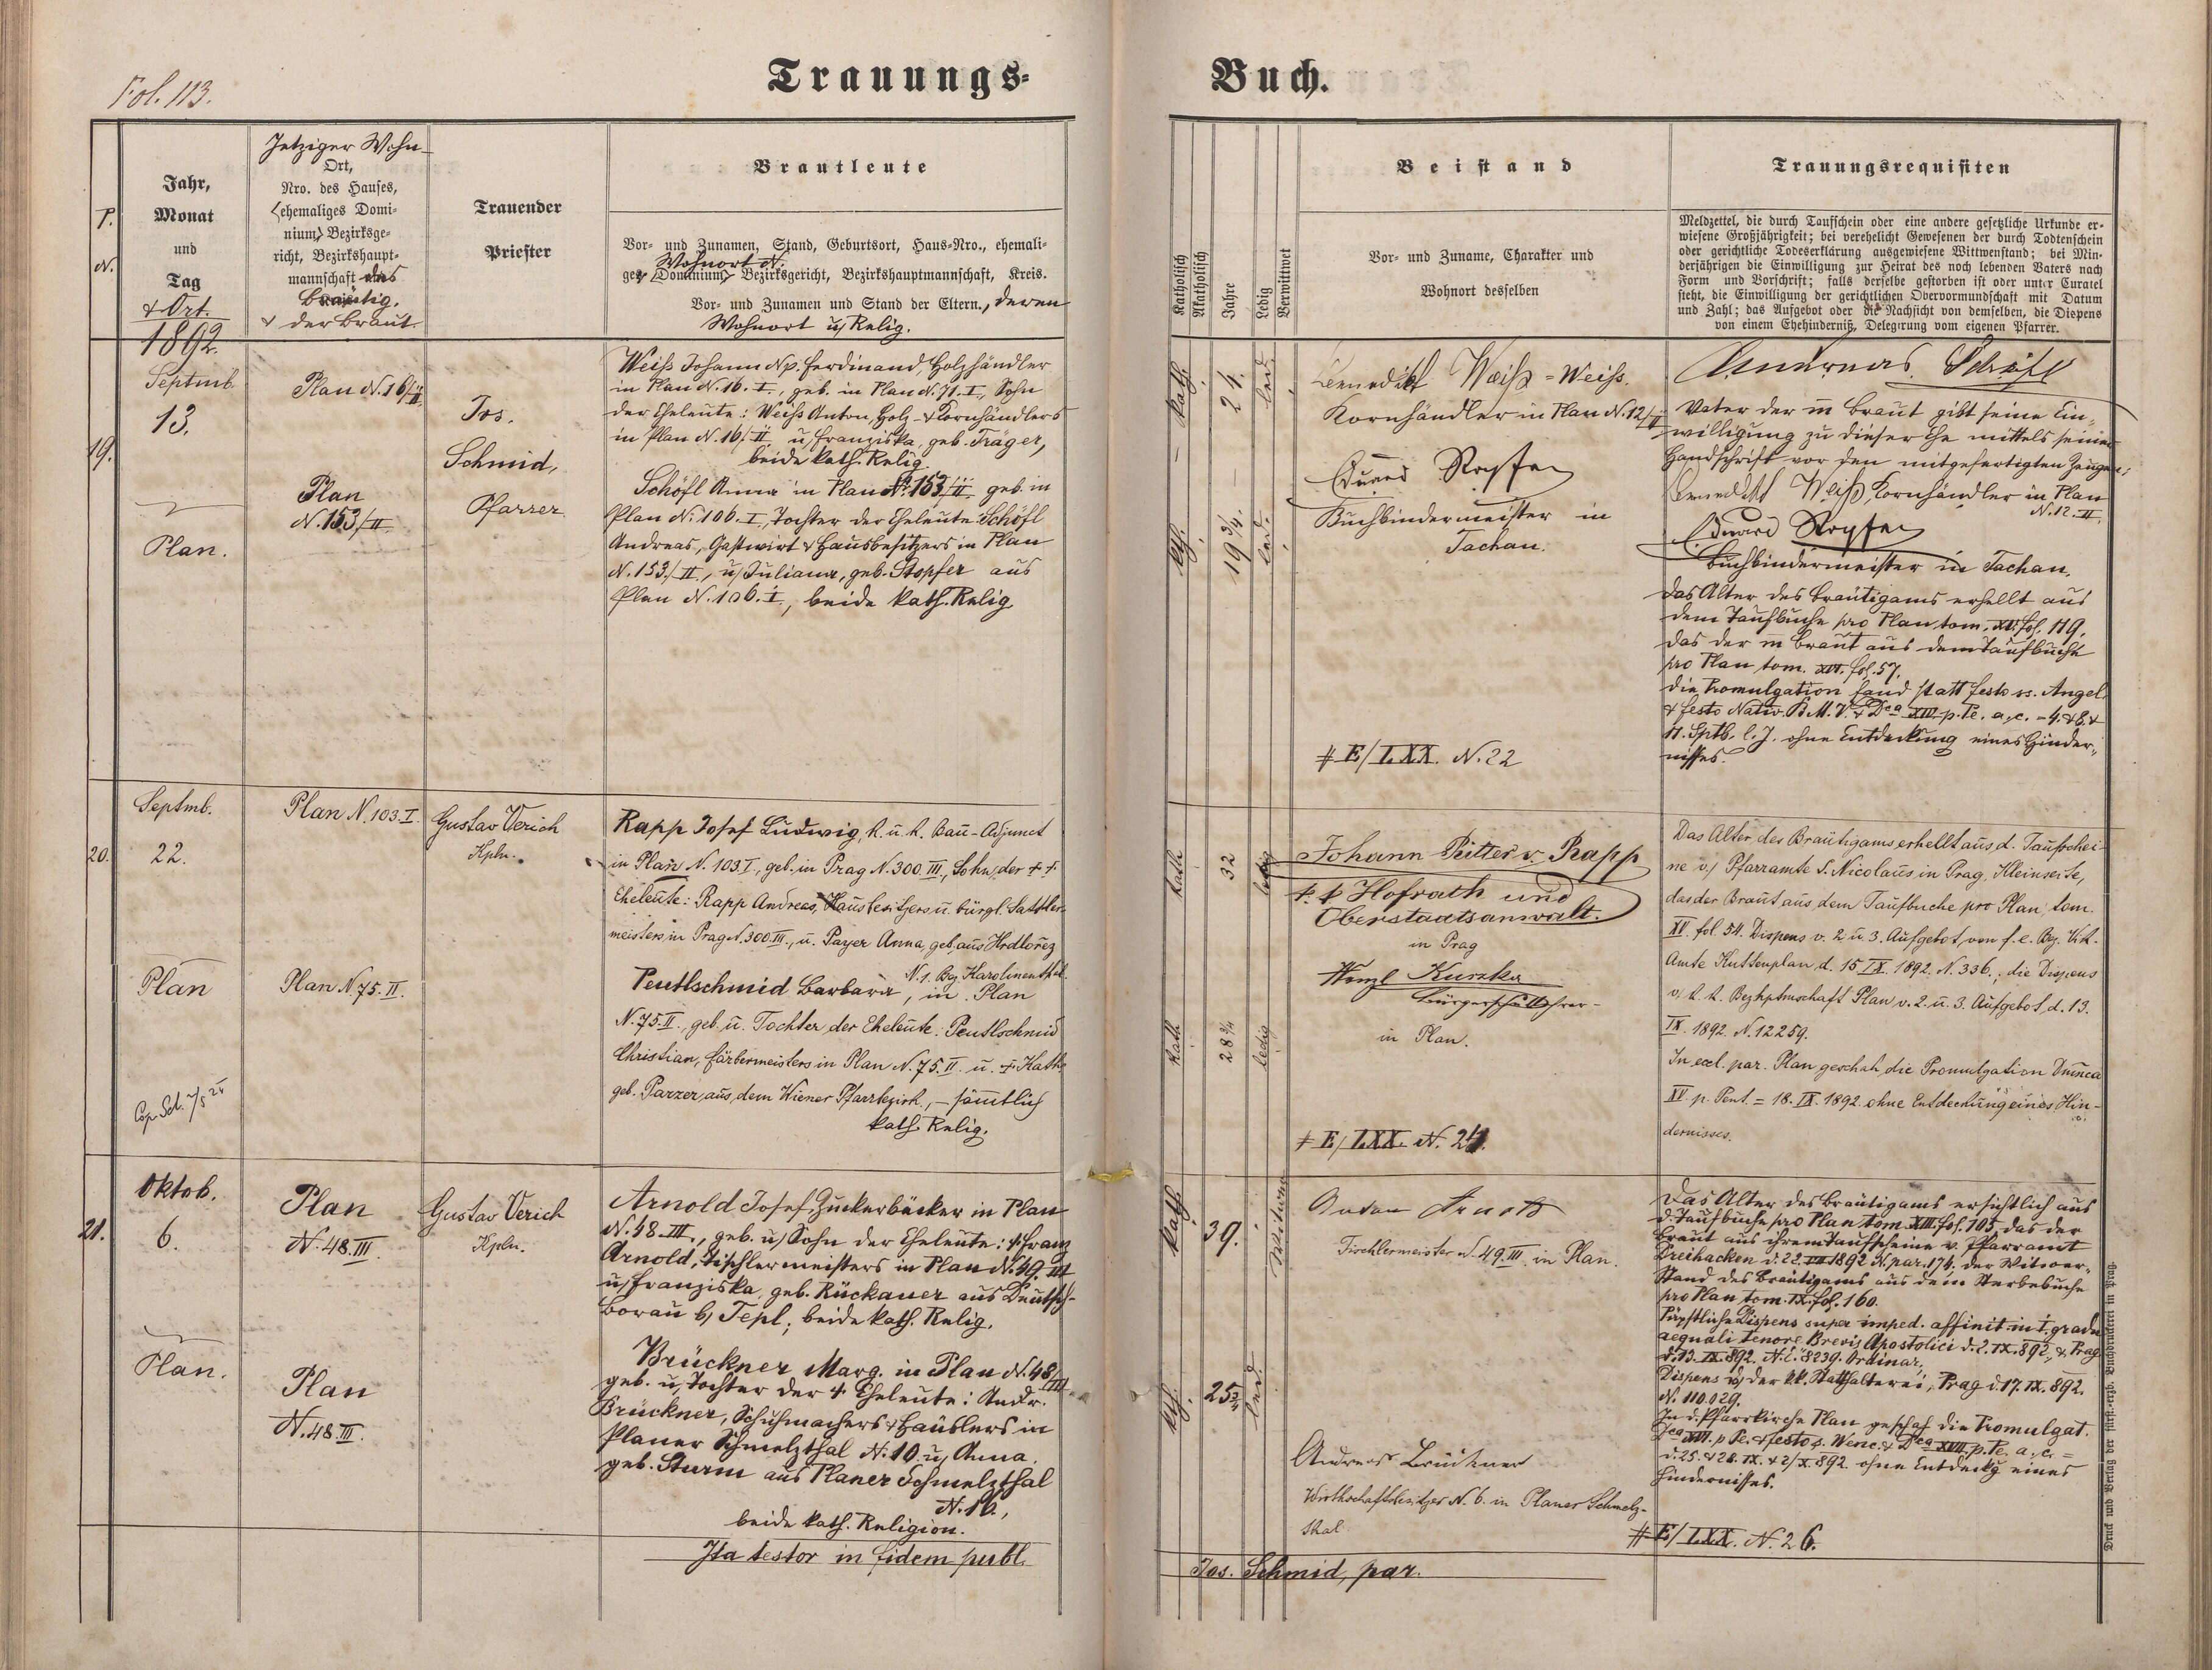 Fol. 113.
Trauungs-
Buch.
P.
N.
Jahr,
Monat
und
Tag
& Ort.
1892.
Jetziger Wohn-
Ort,
Nro. des Hauses,
(ehemaliges Domi-
nium) Bezirksge-
richt, Bezirkshaupt-
mannschaft des
Bräutig.
& der Braut.
Trauender
Priester
Brautleute
Vor- und Zunamen, Stand, Geburtsort, Haus-Nro., ehemali-
Wohnort N.
ges (Dominium) Bezirksgericht, Bezirkshauptmannschaft, Kreis.
Vor- und Zunamen und Stand der Eltern., deren
Wohnort u, Relig.
Katholisch
Akatholisch
Jahre
Ledig
Verwittwet
Beistand
Vor- und Zuname, Charakter und
Wohnort desselben
Trauungsrequisiten
Meldzettel, die durch Taufschein oder eine andere gesetzliche Urkunde er-
wiesene Großjährigkeit; bei verehelicht Gewesenen der durch Todtenschein
oder gerichtliche Todeserklärung ausgewiesene Wittwenstand; bei Min-
derjährigen die Einwilligung zur Heirat des noch lebenden Vaters nach
Form und Vorschrift; falls derselbe gestorben ist oder unter Curatel
steht, die Einwilligung der gerichtlichen Obervormundschaft mit Datum
und Zahl; das Aufgebot oder die Nachsicht von demselben, die Dispens
von einem Ehehinderniß, Delegirung vom eigenen Pfarrer.
19.
Septmb.
13.
Plan.
Plan N. 16/II
Plan
N. 153/II
Jos.
Schmid,
Pfarrer.
Weiß Johann Np. Ferdinand, Holzhändler
in Plan N. 16. I., geb. in Plan N. 71. I., Sohn
der Eheleute: Weiß Anton, Holz- & Kornhändlers
in Plan N. 16/II, u, Franziska, geb. Träger,
beide kath. Relig.
Schöfl Anna in Plan N. 153/II geb. in
Plan N. 106. I., Tochter der Eheleute: Schöfl
Andreas, Gastwirt & Hausbesitzers in Plan
N. 153./II., u, Juliana, geb. Stopfer aus
Plan N. 106. I., beide kath. Relig.
kath.
24.
led.
kth.
19 3/4.
led.
Benedikt Weiß = Weiß.
Kornhändler in Plan N. 12/II
Eduard Stopfer
Buchbindermeister in
Tachau.
# E/LXX. N. 22
Andreas Schöfl
Vater der m Braut gibt seine Ein-
willigung zu dieser Ehe mittels seiner
Handschrift vor den mitgefertigten Zeugen:
Benedikt Weiß, Kornhändler in Plan
N. 12. II.
Eduard Stopfer
Buchbindermeister in Tachau.
Das Alter des Bräutigams erhellt aus
dem Taufbuche pro Plan tom. XV. fol. 119.
das der m Braut aus dem Taufbuche
pro Plan tom. XVI. fol. 57.
Die Promulgation fand statt festo ss. Angel.
& festo Nativ. B.M.V. & Dca XIII p. Pe. a. c. = 4. & 8. &
11. Sptb. l. J. ohne Entdeckung eines Hinder-
nisses.
20.
Septmb.
22.
Plan
Cop. Sch.
Plan N. 103. I.
Plan N. 75. II.
Gustav Verich
Kpln.
Rapp Josef Ludwig, k. u. k. Bau-Adjunct
in Plan N. 103 I., geb. in Prag N. 300. III., Sohn, der + +
Eheleute: Rapp Andreas, Hausbesitzers u. bürgl. Sattler-
meisters in Prag N. 300. III., u. Payer Anna, geb. aus Hrdlořez
N. 1. Bez. Karolinenthal.
Peutlschmid Barbara, in Plan
N. 75. II., geb. u. Tochter der Eheleute: Peutlschmid
Christian, Färbermeisters in Plan N. 75. II. u. + Kath.
geb. Parzer, aus dem Wiener Pfarrbezirk, – sämmtlich
kath. Relig.
kath
32
ledig
kath
28 3/4
ledig
Johann Ritter v. Rapp
k. k. Hofrath und
Oberstaatsanwalt.
in Prag
Wenzl Kurzka
Bürgerschullehrer -
in Plan.
# E/LXX. N. 24.
Das Alter des Bräutigams erhellt aus d. Taufschei-
ne v. Pfarramte S. Nicolaus in Prag, Kleinseite,
das der Braut aus dem Taufbuche pro Plan tom.
XV. fol. 54. Dispens v. 2. u. 3. Aufgebot, von f. e. Bez. Vik.-
Amte Kuttenplan d. 15 IX. 1892. N. 336., die Dispens
v. k. k. Bezhptmschaft Plan v. 2. u. 3. Aufgebot, d. 13.
IX. 1892. N. 12259.
In eccl. par. Plan geschah die Promulgation Dmnca
XV. p. Pent. = 18. IX. 1892 ohne Entdeckung eines Hin-
dernisses.
21.
Oktob.
6.
Plan.
Plan
N. 48. III.
Plan
N. 48. III.
Gustav Verich
Kpln.
Arnold Josef, Zuckerbäcker in Plan
N. 48. III., geb. u, Sohn der Eheleute: + Franz
Arnold, Tischlermeisters in Plan N. 49. III
u, Franziska, geb. Rückauer aus Deutsch-
borau b, Tepl; beide kath. Relig.
Brückner Marg. in Plan N. 48/III.
geb. u, Tochter der + Eheleute: Andr.
Brückner, Schuhmachers & Häuslers in
Planer Schmelzthal N. 10. u, Anna
geb. Sturm aus Planer Schmelzthal
N. 16.,
beide kath. Religion.
Ita testor in fidem publ.
kath.
39.
Witwer
kth.
25 3/4
led.
Anton Arnold
Tischlermeister N. 49. III. in Plan.
Andreas Brückner
Wirthschaftsbesitzer N. 6. in Planer Schmelz-
thal
Das Alter des Bräutigams ersichtlich aus
d. Taufbuche pro Plan tom. XIII. fol. 105, das der
Braut aus ihrem Taufscheine v. Pfarramt
Dreihacken d. 22. VII 1892 N. par. 174. der Witwer-
Stand des Bräutigams aus dem Sterbebuche
pro Plan tom. IX. fol. 160.
Päpstliche Dispens super imped. affinit. in I. gradu
aequali tenore Brevis Apostolici d. 2. IX. 892, & Prag
d. 13. IX. 892. N. E. 8239. Ordinar.
Dispens v, der kk. Statthalterei, Prag d. 17. IX. 892.
N. 110.029.
In d. Pfarrkirche Plan geschah die Promulgat.
Dca XVI. p Pe. & festo s. Wenc. & Dca XVII. p. Pe. a. c. =
d. 25. & 28. IX. & 2/X. 892. ohne Entdeckg eines
Hindernisses.
# E/LXX. N. 26.
Jos. Schmid, par.
Druck und Verlag der fürst.-erzb. Buchdruckerei in Prag.